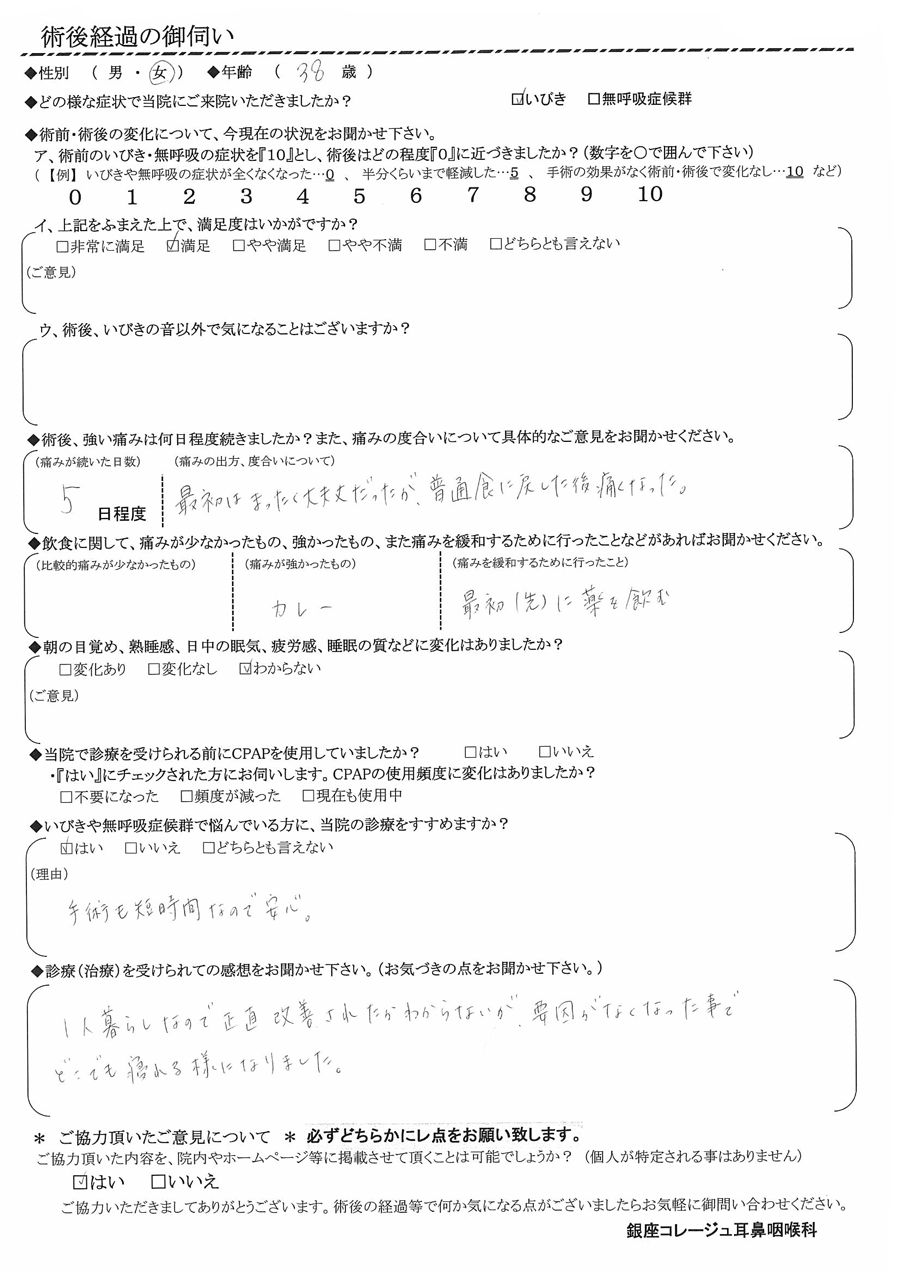 術後経過の御伺い
◆性別 （ 男 ・ 女 ） ◆年齢 （ 38 歳 ）
◆どの様な症状で当院にご来院いただきましたか？ ☑いびき □無呼吸症候群
◆術前・術後の変化について、今現在の状況をお聞かせ下さい。
ア、術前のいびき・無呼吸の症状を『10』とし、術後はどの程度『0』に近づきましたか？（数字を〇で囲んで下さい）
（ 【例】 いびきや無呼吸の症状が全くなくなった…0 、 半分くらいまで軽減した…5 、 手術の効果がなく術前・術後で変化なし…10 など）
0 1 2 3 4 5 6 7 8 9 10
イ、上記をふまえた上で、満足度はいかがですか？
□非常に満足 ☑満足 □やや満足 □やや不満 □不満 □どちらとも言えない
（ご意見）
ウ、術後、いびきの音以外で気になることはございますか？
◆術後、強い痛みは何日程度続きましたか？また、痛みの度合いについて具体的なご意見をお聞かせください。
（痛みが続いた日数） （痛みの出方、度合いについて）
5 日程度 最初はまったく大丈夫だったが、普通食に戻した後痛くなった。
◆飲食に関して、痛みが少なかったもの、強かったもの、また痛みを緩和するために行ったことなどがあればお聞かせください。
（比較的痛みが少なかったもの） （痛みが強かったもの） （痛みを緩和するために行ったこと）
カレー 最初（先）に薬を飲む
◆朝の目覚め、熟睡感、日中の眠気、疲労感、睡眠の質などに変化はありましたか？
□変化あり □変化なし ☑わからない
（ご意見）
◆当院で診療を受けられる前にCPAPを使用していましたか？ □はい □いいえ
・『はい』にチェックされた方にお伺いします。CPAPの使用頻度に変化はありましたか？
□不要になった □頻度が減った □現在も使用中
◆いびきや無呼吸症候群で悩んでいる方に、当院の診療をすすめますか？
☑はい □いいえ □どちらとも言えない
（理由）
手術も短時間なので安心。
◆診療（治療）を受けられての感想をお聞かせ下さい。（お気づきの点をお聞かせ下さい。）
1人暮らしなので正直改善されたかわからないが、要因がなくなった事で
どこでも寝れる様になりました。
＊ ご協力頂いたご意見について ＊ 必ずどちらかにレ点をお願い致します。
ご協力頂いた内容を、院内やホームページ等に掲載させて頂くことは可能でしょうか？ （個人が特定される事はありません）
☑はい □いいえ
ご協力いただきましてありがとうございます。術後の経過等で何か気になる点がございましたらお気軽に御問い合わせください。
銀座コレージュ耳鼻咽喉科